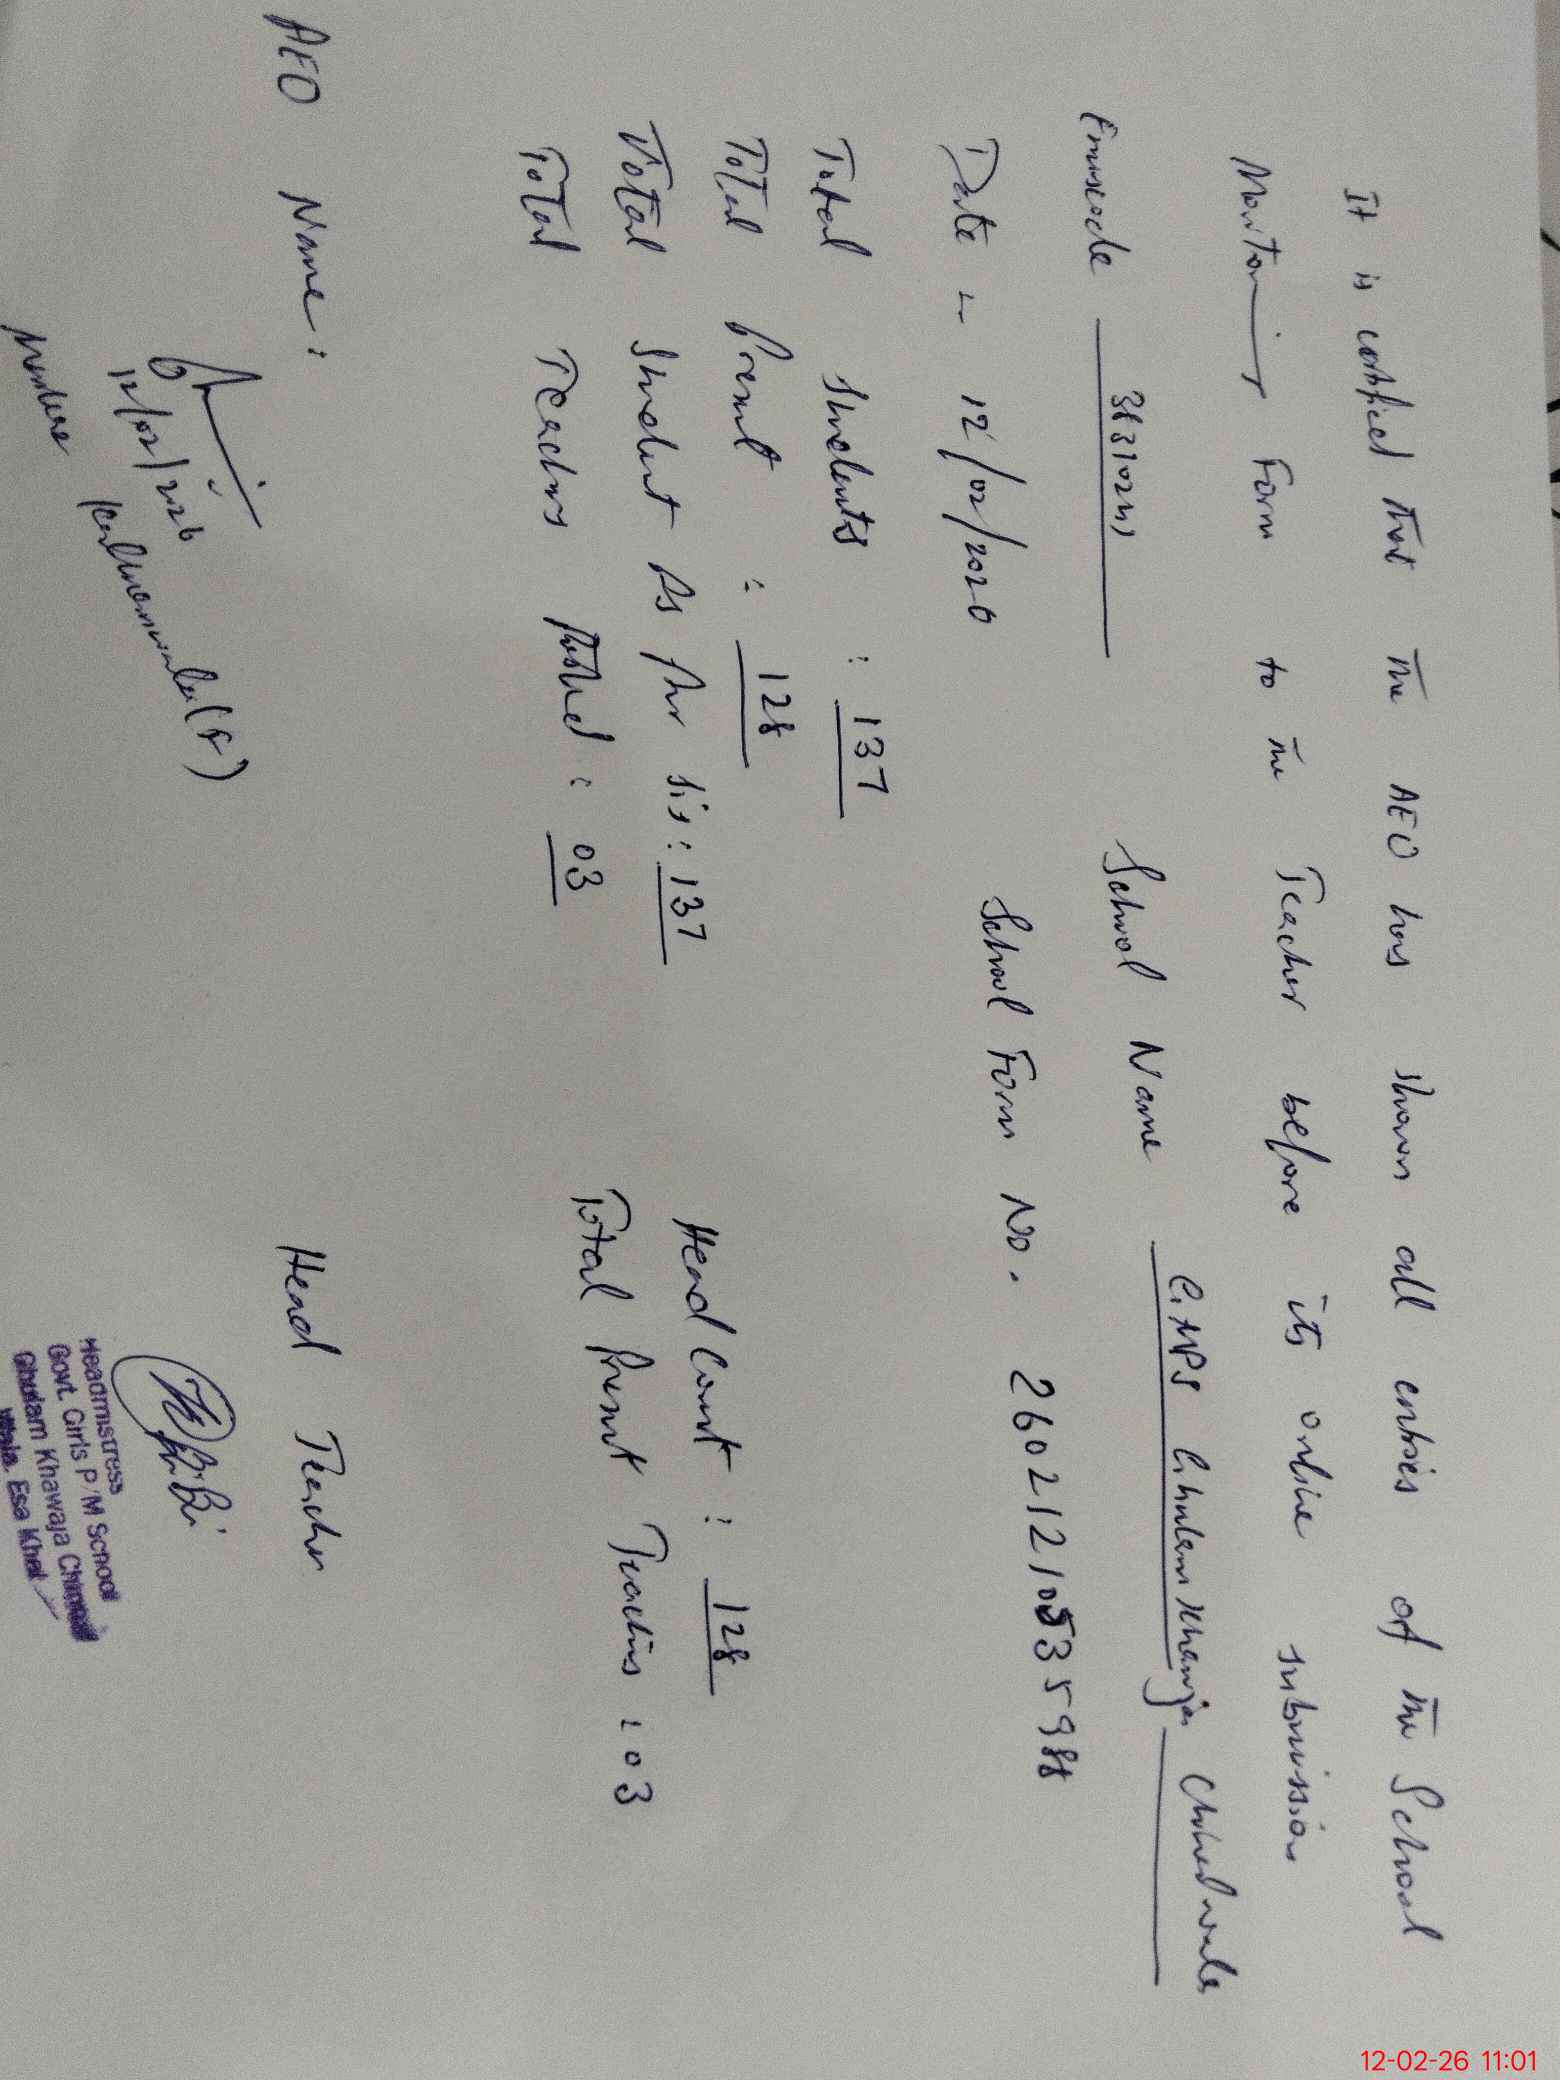 It is certified that the AEO has shown all entries of the School
Monitoring Form to the Teacher before its online submission
Emiscode School Name GMPS Ghulam Khawaja
Date :- 12/02/2026 School Form No.
Total Students : 137
Total Present : 128 Head Count : 128
Total Student As Per Sis : 137
Total Teachers Posted : 03 Total Present Teachers : 03
AEO Name : Head Teacher
12/02/2026
Headmistress
Govt. Girls P/M School
Ghulam Khawaja
Esa Khel
12-02-26 11:01